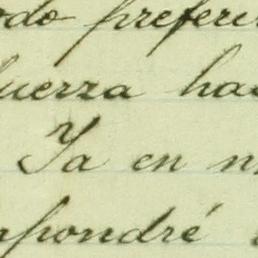 odo preferi
fuerza hac
Ya en m
mpondré